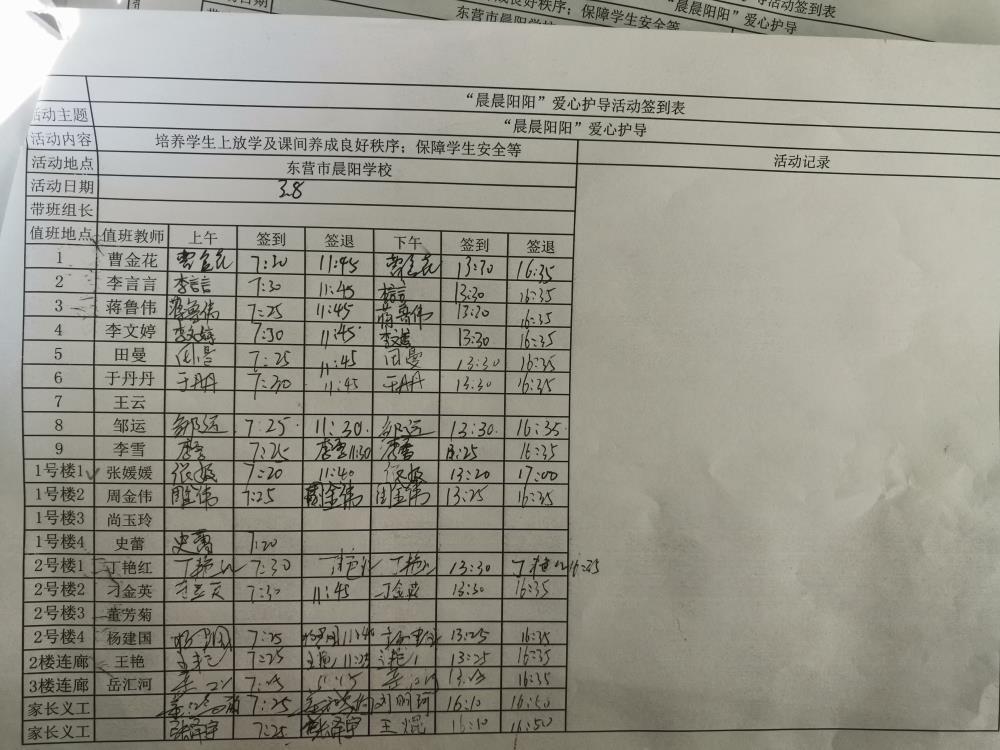 东营市晨阳学校
保障学生安全等
“晨晨阳阳”爱心护导
“晨晨阳阳”爱心护导活动签到表
活动主题 “晨晨阳阳”爱心护导
活动内容 培养学生上放学及课间养成良好秩序；保障学生安全等 活动记录
活动地点 东营市晨阳学校
活动日期 3.8
带班组长
值班地点 值班教师 上午 签到 签退 下午 签到 签退
1 曹金花 曹金花 7:20 11:45 曹金花 16:35
2 李言言 李言言 7:30 11:45 李言言 13:30 16:35
3 蒋鲁伟 蒋鲁伟 7:25 11:45 蒋鲁伟 13:30 16:35
4 李文婷 李文婷 7:30 11:45 李文婷 13:30 16:35
5 田曼 田曼 7:25 11:45 田曼 13:30 16:35
6 于丹丹 于丹丹 7:30 11:45 于丹丹 13:30 16:35
7 王云
8 邹运 邹运 7:25 11:30 邹运 13:30 16:35
9 李雪 李雪 7:25 李雪 11:30 李雪 13:25 16:35
1号楼1 张媛媛 7:20 11:40 13:20 17:00
1号楼2 周金伟 周金伟 7:25 周金伟 周金伟 13:25 16:35
1号楼3 尚玉玲
1号楼4 史蕾 史蕾 7:20
2号楼1 丁艳红 丁艳红 7:30 丁艳红 丁艳红 13:30 丁艳红
2号楼2 刁金英 刁金英 7:30 11:45 刁金英 13:30 16:35
2号楼3 董芳菊
2号楼4 杨建国 杨建国 7:25 13:25 16:35
2楼连廊 王艳 王艳 7:25 王艳 11:25 王艳 13:25 16:35
3楼连廊 岳汇河 16:35
家长义工 7:25 16:10
家长义工 张泽宇 7:25 张泽宇 王焜 16:10 16:50